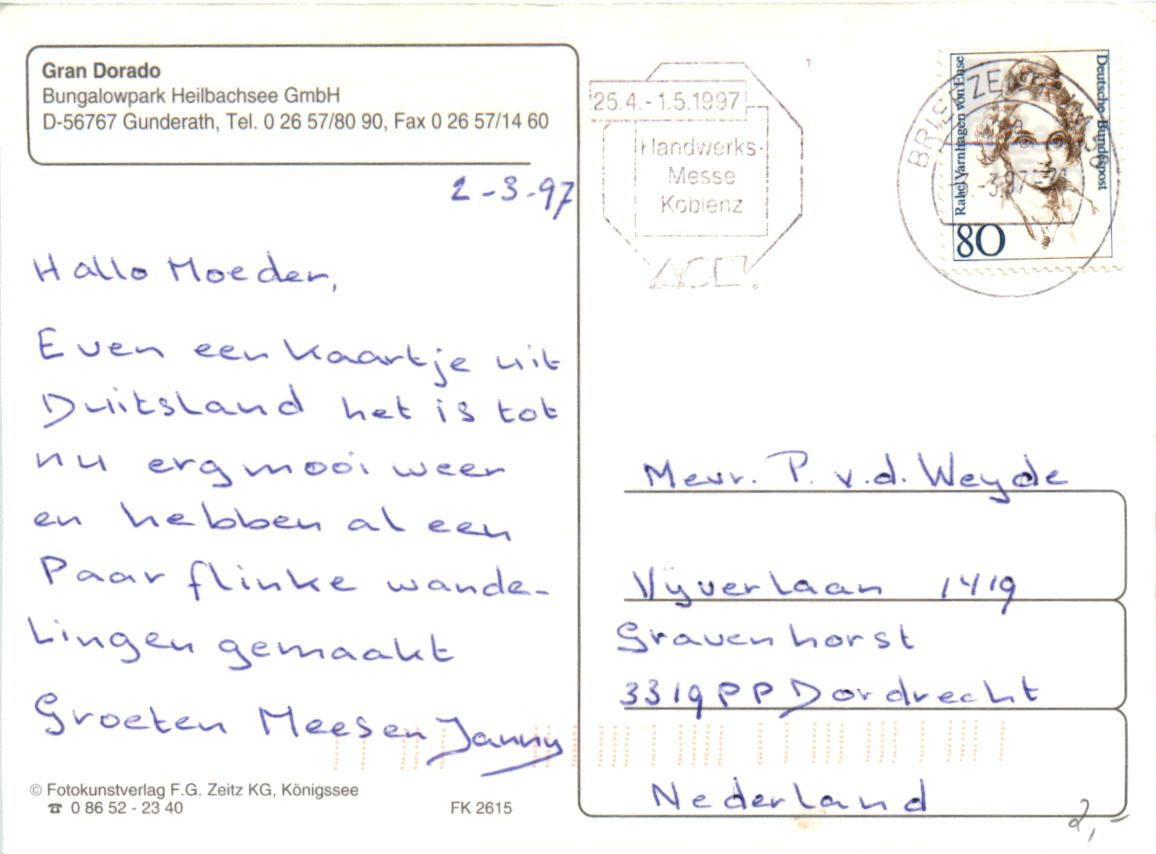 Gran Dorado
Bungalowpark Heilbachsee GmbH
D-56767 Gunderath, Tel. 0 26 57/80 90, Fax 0 26 57/14 60
2-3-97
Hallo Moeder,
Even een kaartje uit
Duitsland het is tot
nu erg mooi weer
en hebben al een
Paar flinke wande-
lingen gemaakt
Groeten Meesen Janny
© Fotokunstverlag F.G. Zeitz KG, Königssee
☎ 0 86 52 - 23 40
FK 2615
25.4.-1.5.1997
Handwerks-
Messe
Koblenz
Rahel Varnhagen von Ense
Deutsche Bundespost
80
Mevr. P. v.d. Weyde
Vijverlaan 1419
Gravenhorst
3319PP Dordrecht
Nederland
2,-